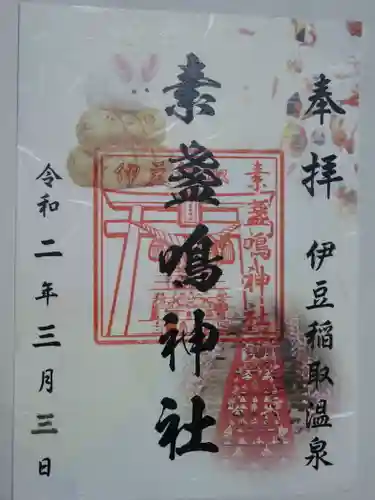 奉拝 伊豆稲取温泉
素盞鳴神社
素盞鳴神社
令和二年三月三日